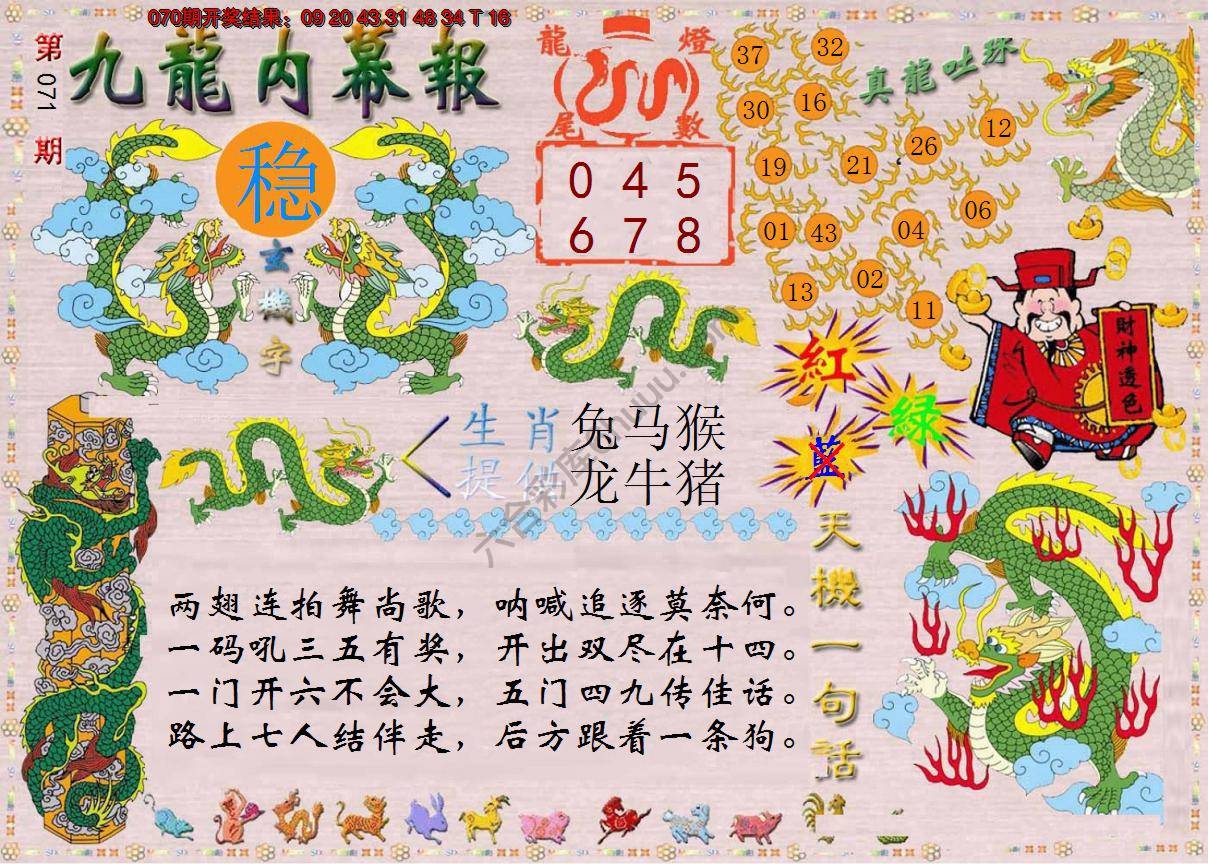 070期开奖结果：09 20 43 31 48 34 T 16
第071期
九龍内幕報
稳
玄機字
龍燈
尾數
0 4 5
6 7 8
真龍吐珠
37 32
30 16
19 21 26 12
01 43 04 06
13 02 11
財神透色
紅
綠
藍
生肖 兔马猴
提供 龙牛猪
六合彩库
天機一句話
两翅连拍舞尚歌，呐喊追逐莫奈何。
一码吼三五有奖，开出双尽在十四。
一门开六不会大，五门四九传佳话。
路上七人结伴走，后方跟着一条狗。